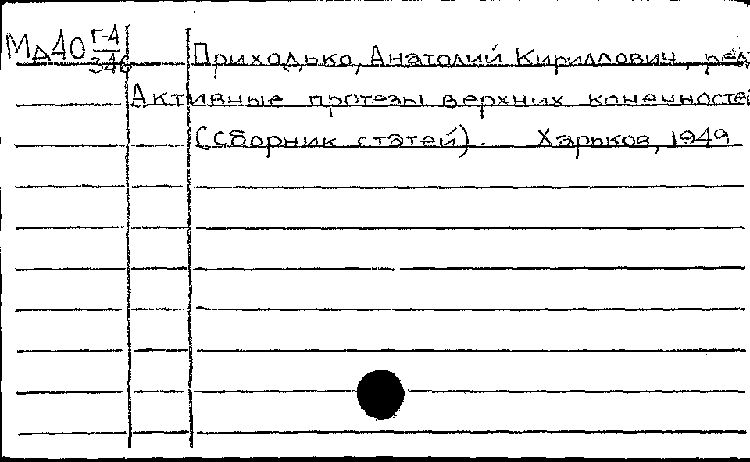 Мд40 Г-4
346
Приходько, Анатолий Кириллович, ред
Активные протезы верхних конечностей
(Сборник статей). Харьков, 1949